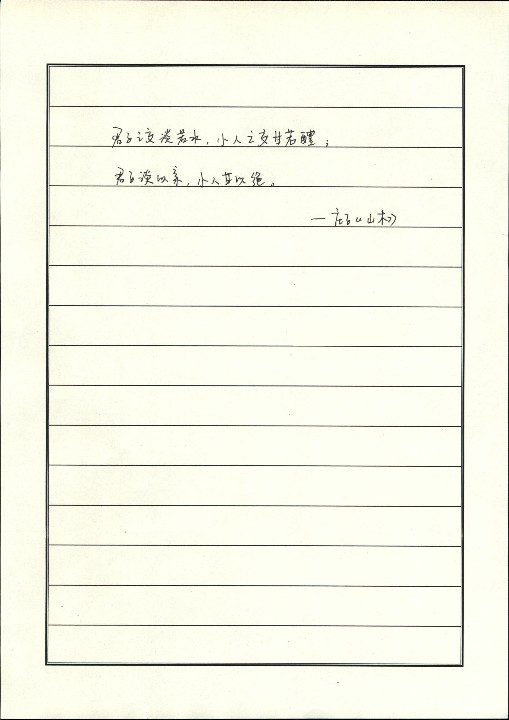 君子之交淡若水，小人之交甘若醴；
君子淡以亲，小人甘以绝。
—庄子《山木》